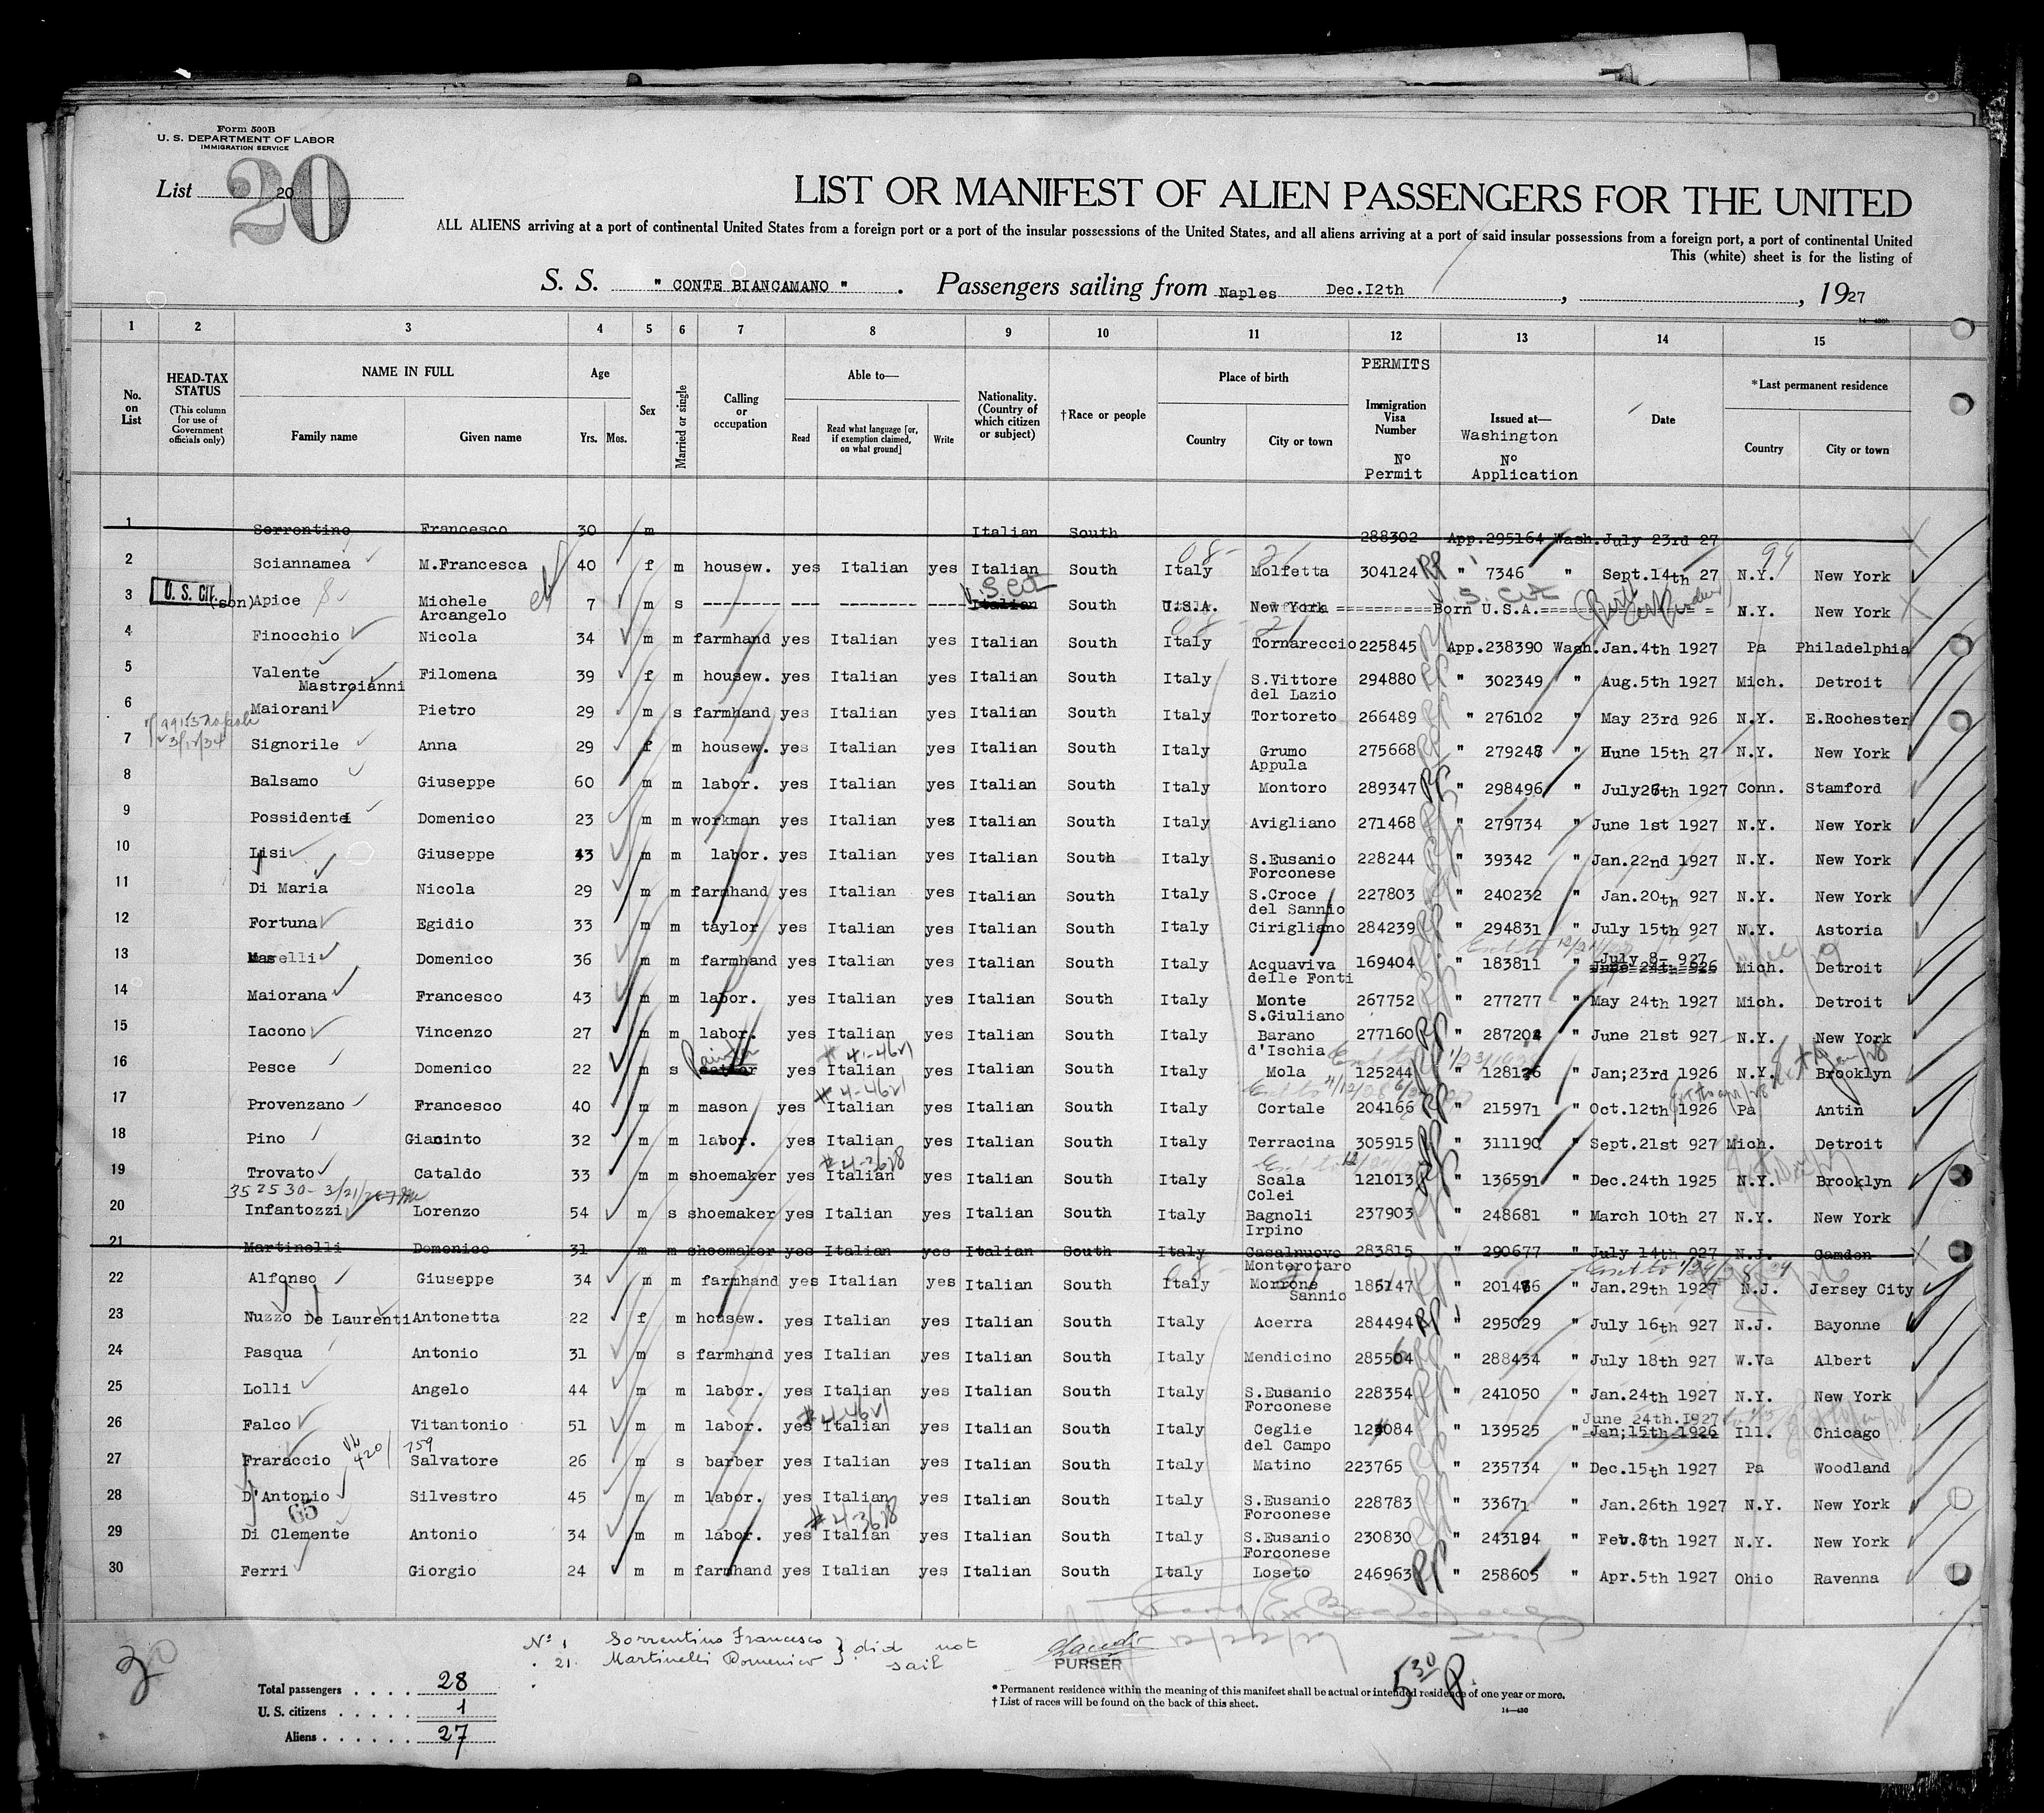 Form 500B
U. S. DEPARTMENT OF LABOR
IMMIGRATION SERVICE
List 20
20
LIST OR MANIFEST OF ALIEN PASSENGERS FOR THE UNITED
ALL ALIENS arriving at a port of continental United States from a foreign port or a port of the insular possessions of the United States, and all aliens arriving at a port of said insular possessions from a foreign port, a port of continental United
This (white) sheet is for the listing of
S. S. " CONTE BIANCAMANO " . Passengers sailing from Naples Dec.I2th , , 1927
1 2 3 4 5 6 7 8 9 10 11 12 13 14 15
No. on List
HEAD-TAX STATUS (This column for use of Government officials only)
NAME IN FULL
Family name Given name
Age Yrs. Mos.
Sex
Married or single
Calling or occupation
Able to—
Read Read what language [or, if exemption claimed, on what ground] Write
Nationality. (Country of which citizen or subject)
†Race or people
Place of birth
Country City or town
PERMITS
Immigration Visa Number
Nº Permit
Issued at—
Washington
Nº Application
Date
*Last permanent residence
Country City or town
1 Sorrentino Francesco 30 m Italian South 288302 App.295164 Wash. July 23rd 27
2 Sciannamea M.Francesca 40 f m housew. yes Italian yes Italian South Italy Molfetta 304124 " 7346 " Sept.14th 27 N.Y. New York
3 U. S. CIT. son) Apice Michele Arcangelo 7 m s Italian South U.S.A. New York Born U.S.A. N.Y. New York
4 Finocchio Nicola 34 m m farmhand yes Italian yes Italian South Italy Tornareccio 225845 App.238390 Wash. Jan.4th 1927 Pa Philadelphia
5 Valente Mastroianni Filomena 39 f m housew. yes Italian yes Italian South Italy S.Vittore del Lazio 294880 " 302349 " Aug.5th 1927 Mich. Detroit
6 Maiorani Pietro 29 m s farmhand yes Italian yes Italian South Italy Tortoreto 266489 " 276102 " May 23rd 926 N.Y. E.Rochester
7 Signorile Anna 29 f m housew. yes Italian yes Italian South Italy Grumo Appula 275668 " 279248 " June 15th 27 N.Y. New York
8 Balsamo Giuseppe 60 m m labor. yes Italian yes Italian South Italy Montoro 289347 " 298496 " July26th 1927 Conn. Stamford
9 Possidente Domenico 23 m m workman yes Italian yes Italian South Italy Avigliano 271468 " 279734 " June 1st 1927 N.Y. New York
10 Lisi Giuseppe 43 m m labor. yes Italian yes Italian South Italy S.Eusanio Forconese 228244 " 39342 " Jan.22nd 1927 N.Y. New York
11 Di Maria Nicola 29 m m farmhand yes Italian yes Italian South Italy S.Croce del Sannio 227803 " 240232 " Jan.20th 927 N.Y. New York
12 Fortuna Egidio 33 m m taylor yes Italian yes Italian South Italy Cirigliano 284239 " 294831 " July 15th 927 N.Y. Astoria
13 Domenico 36 m m farmhand yes Italian yes Italian South Italy Acquaviva delle Fonti 169404 " 183811 " July 8- 927 June 24th 926 Mich. Detroit
14 Maiorana Francesco 43 m m labor. yes Italian yes Italian South Italy Monte S.Giuliano 267752 " 277277 " May 24th 1927 Mich. Detroit
15 Iacono Vincenzo 27 m m labor. yes Italian yes Italian South Italy Barano d'Ischia 277160 " 287204 " June 21st 927 N.Y. New York
16 Pesce Domenico 22 m s Painter yes Italian yes Italian South Italy Mola 125244 " 128126 " Jan;23rd 1926 N.Y. Brooklyn
17 Provenzano Francesco 40 m m mason yes Italian yes Italian South Italy Cortale 204166 " 215971 " Oct.12th 1926 Pa Antin
18 Pino Giacinto 32 m m labor. yes Italian yes Italian South Italy Terracina 305915 " 311190 " Sept.21st 927 Mich. Detroit
19 Trovato Cataldo 33 m m shoemaker yes Italian yes Italian South Italy Scala Colei 121013 " 136591 " Dec.24th 1925 N.Y. Brooklyn
20 Infantozzi Lorenzo 54 m s shoemaker yes Italian yes Italian South Italy Bagnoli Irpino 237903 " 248681 " March 10th 27 N.Y. New York
21 Martinelli Domenico 31 m m shoemaker yes Italian yes Italian South Italy Casalnuovo Monterotaro 283815 " 290677 " July 14th 927 N.J. Camden
22 Alfonso Giuseppe 34 m m farmhand yes Italian yes Italian South Italy Morrone Sannio 186147 " 201486 " Jan.29th 1927 N.J. Jersey City
23 Nuzzo De Laurenti Antonetta 22 f m housew. yes Italian yes Italian South Italy Acerra 284494 " 295029 " July 16th 927 N.J. Bayonne
24 Pasqua Antonio 31 m s farmhand yes Italian yes Italian South Italy Mendicino 285504 " 288434 " July 18th 927 W.Va Albert
25 Lolli Angelo 44 m m labor. yes Italian yes Italian South Italy S.Eusanio Forconese 228354 " 241050 " Jan.24th 1927 N.Y. New York
26 Falco Vitantonio 51 m m labor. yes Italian yes Italian South Italy Ceglie del Campo 124084 " 139525 " June 24th.I927 Jan;15th 1926 Ill. Chicago
27 Fraraccio Salvatore 26 m s barber yes Italian yes Italian South Italy Matino 223765 " 235734 " Dec.15th 1927 Pa Woodland
28 D'Antonio Silvestro 45 m m labor. yes Italian yes Italian South Italy S.Eusanio Forconese 228783 " 33671 " Jan.26th 1927 N.Y. New York
29 Di Clemente Antonio 34 m m labor. yes Italian yes Italian South Italy S.Eusanio Forconese 230830 " 243194 " Feb.8th 1927 N.Y. New York
30 Ferri Giorgio 24 m m farmhand yes Italian yes Italian South Italy Loseto 246963 " 258605 " Apr.5th 1927 Ohio Ravenna
Nº 1 Sorrentino Francesco } did not
" 21. Martinelli Domenico } sail
PURSER
20
Total passengers . . . . 28
U. S. citizens . . . . . 1
Aliens . . . . . . 27
* Permanent residence within the meaning of this manifest shall be actual or intended residence of one year or more.
† List of races will be found on the back of this sheet.
14—430
5 30 P.